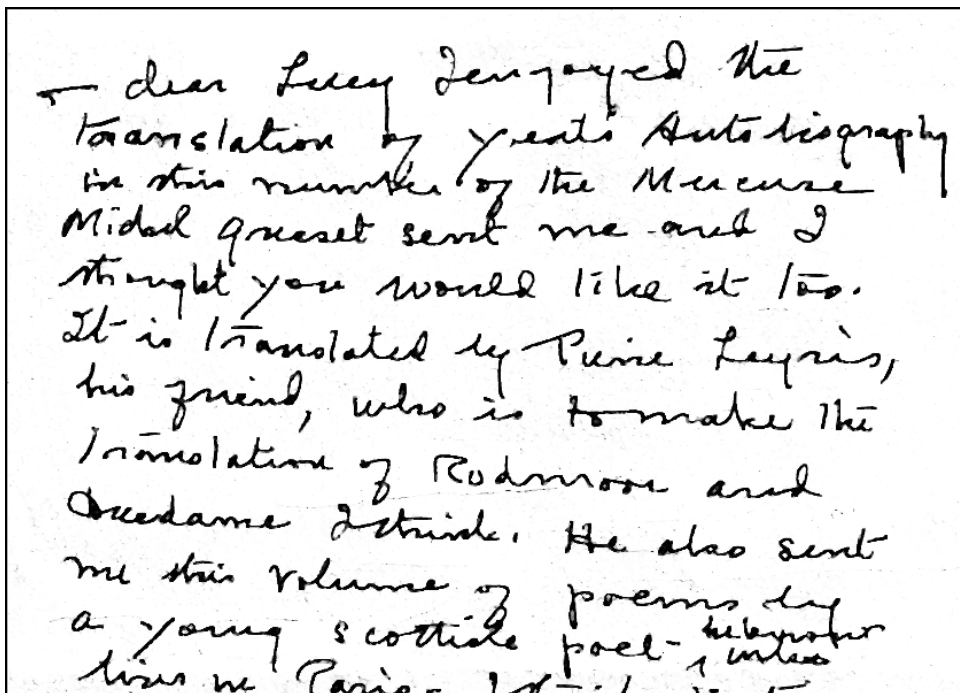 - dear Lucy I enjoyed the
translation of Yeats Autobiography
in this number of the Mercure
Michel Gresset sent me and I
thought you would like it too.
It is translated by Pierre Leyris,
his friend, who is to make the
translation of Rodmoor and
Ducdame I think. He also sent
me this volume of poems by
a young scottish poet - he knows
who
lives in Paris - I think